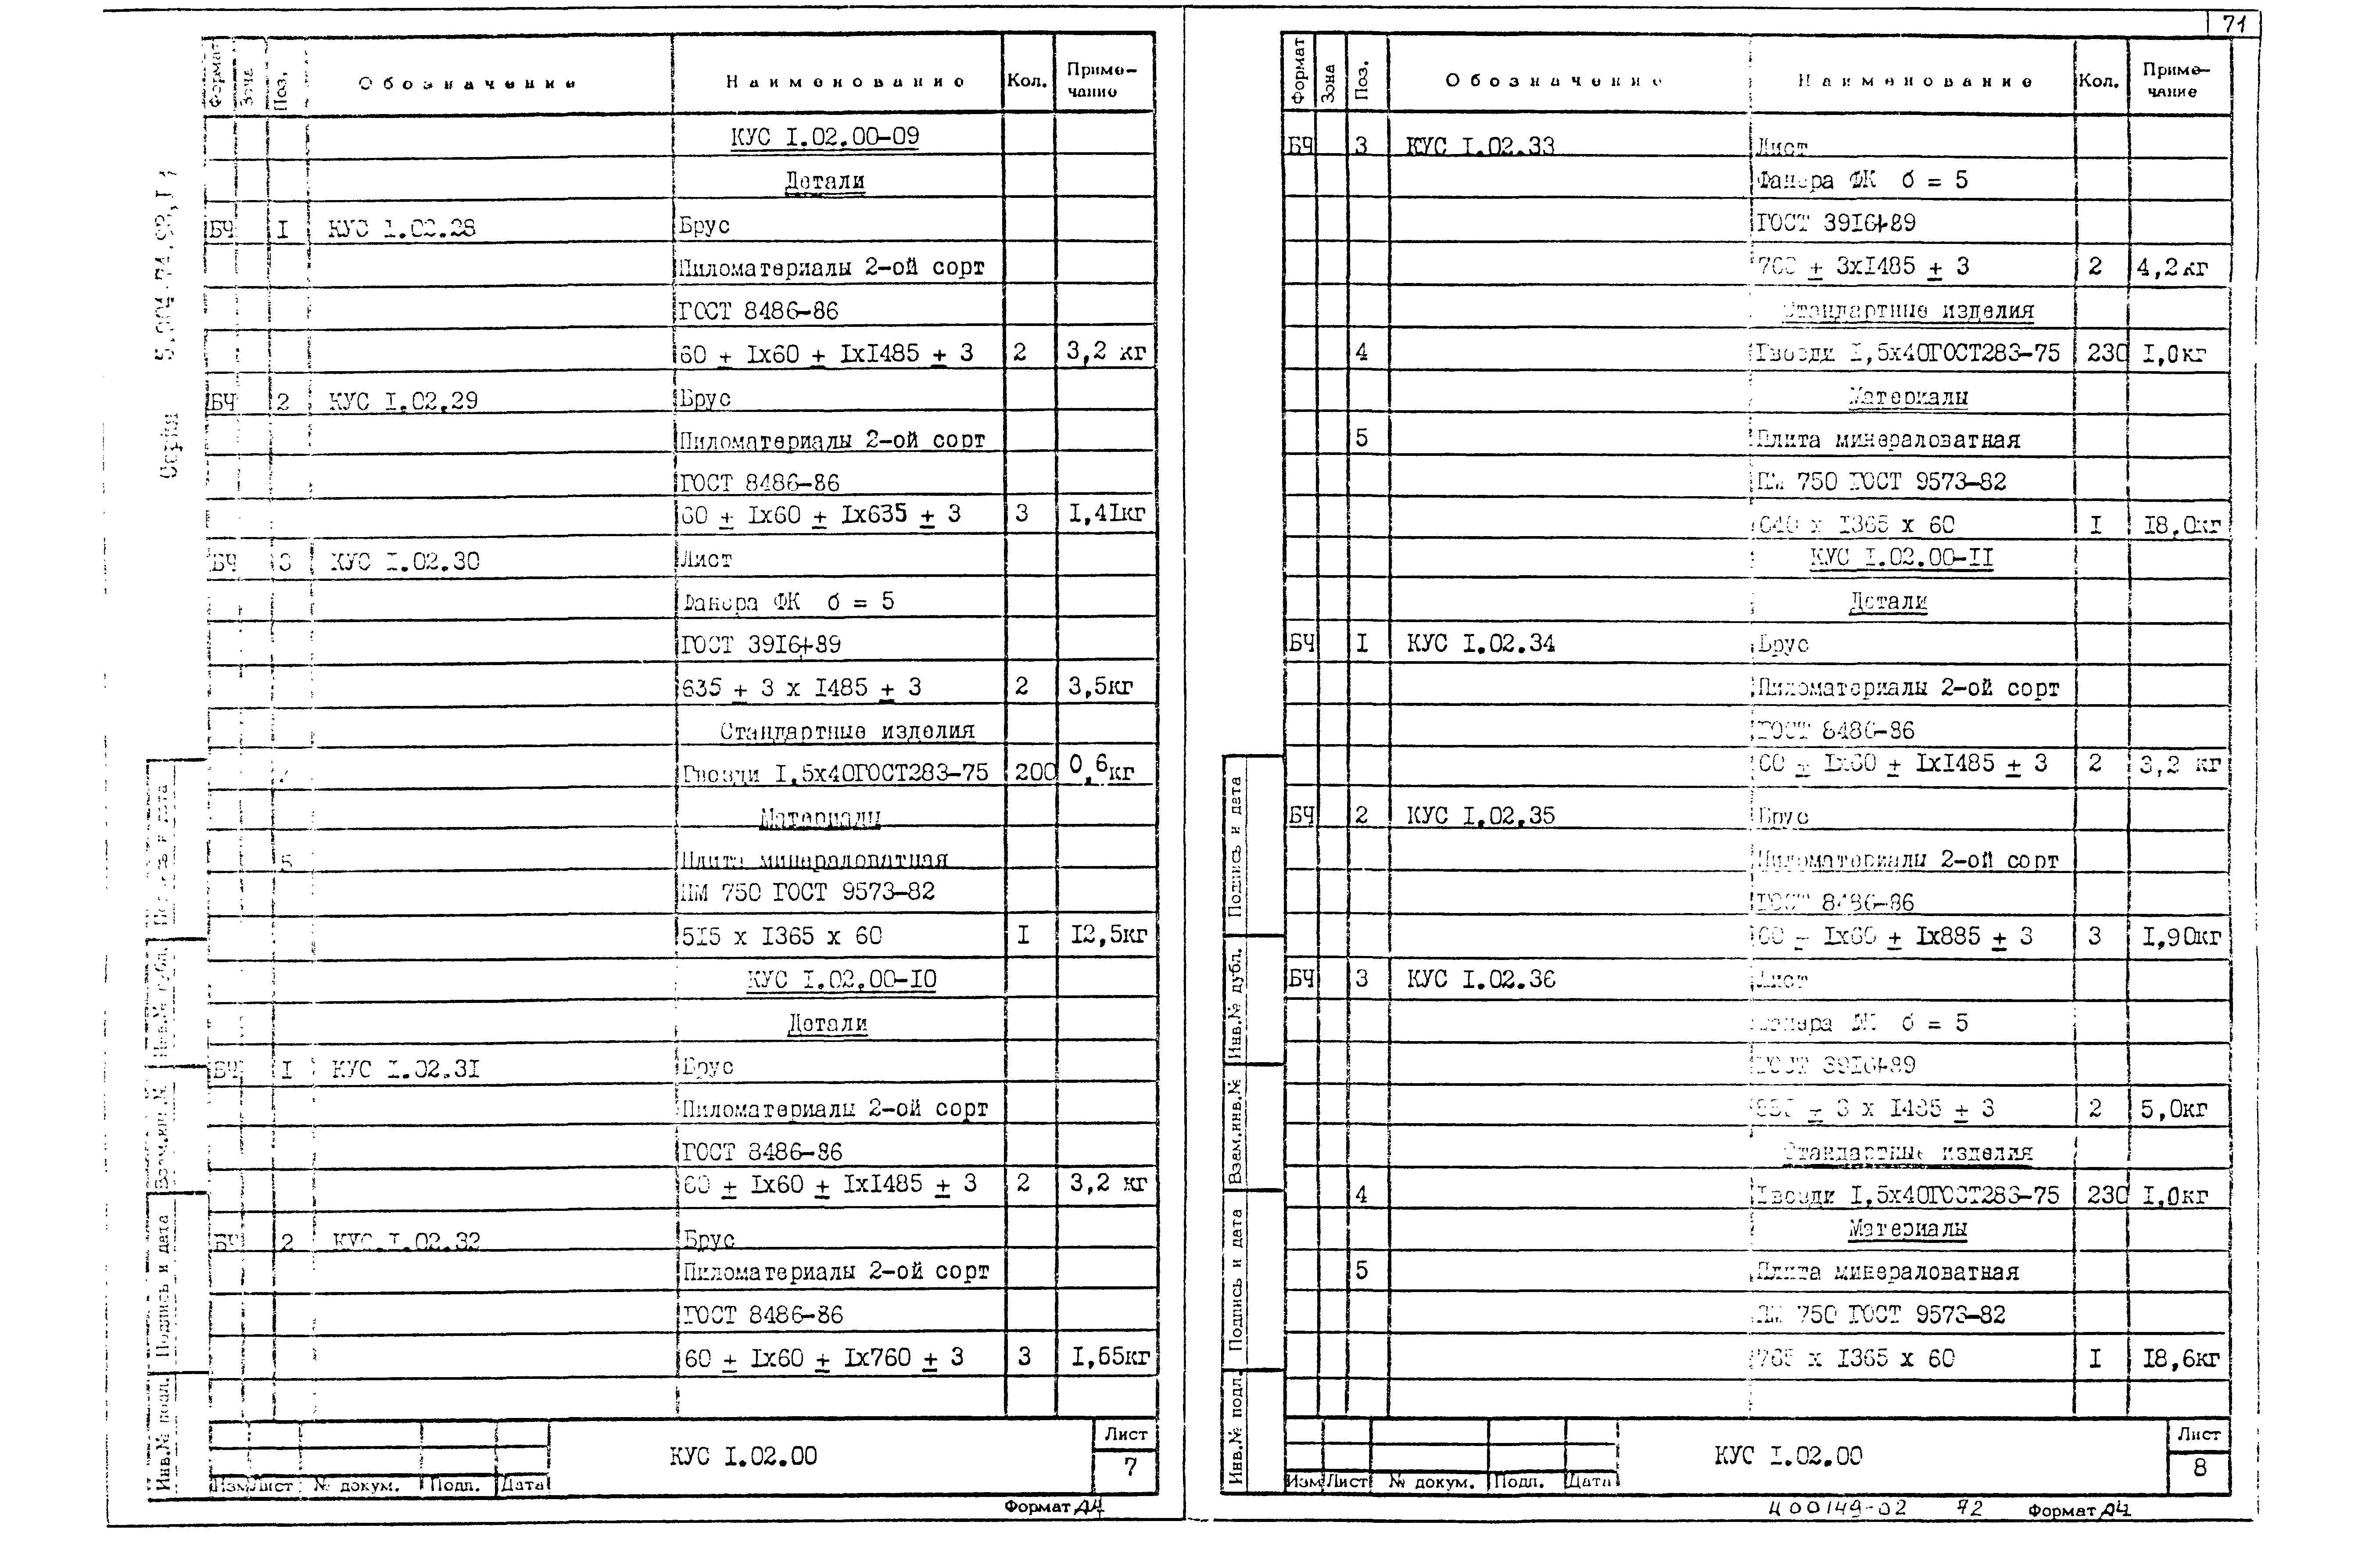 71
Серия 5.904-74.93,I;
Формат Зона Поз. Обозначение Наименование Кол. Приме-чание
КУС I.02.00-09
Детали
БЧ I КУС I.02.28 Брус
Пиломатериалы 2-ой сорт
ГОСТ 8486-86
60 ± Iх60 ± IхI485 ± 3 2 3,2 кг
БЧ 2 КУС I.02.29 Брус
Пиломатериалы 2-ой сорт
ГОСТ 8486-86
60 ± Iх60 ± Iх635 ± 3 3 I,4Iкг
БЧ 3 КУС I.02.30 Лист
Фанера ФК б = 5
ГОСТ 39I6-89
635 ± 3 х I485 ± 3 2 3,5кг
Стандартные изделия
Гвозди I,5х40ГОСТ283-75 200 0,6кг
Материалы
5 Плита минераловатная
ПМ 750 ГОСТ 9573-82
5I5 х I365 х 60 I I2,5кг
КУС I.02.00-I0
Детали
БЧ I КУС I.02.3I Брус
Пиломатериалы 2-ой сорт
ГОСТ 8486-86
60 ± Iх60 ± IхI485 ± 3 2 3,2 кг
БЧ 2 КУС.I.02.32 Брус
Пиломатериалы 2-ой сорт
ГОСТ 8486-86
60 ± Iх60 ± Iх760 ± 3 3 I,65кг
Инв.№ подл. Подпись и дата Взам.инв.№ Инв.№ дубл. Подпись и дата
Изм Лист № докум. Подп. Дата
КУС I.02.00
Лист
7
Формат А4
Формат Зона Поз. Обозначение Наименование Кол. Приме-чание
БЧ 3 КУС I.02.33 Лист
Фанера ФК б = 5
ГОСТ 39I6-89
760 ± 3хI485 ± 3 2 4,2кг
Стандартные изделия
4 Гвозди I,5х40ГОСТ283-75 230 I,0кг
Материалы
5 Плита минераловатная
ПМ 750 ГОСТ 9573-82
640 х I365 х 60 I I8,0кг
КУС I.02.00-II
Детали
БЧ I КУС I.02.34 Брус
Пиломатериалы 2-ой сорт
ГОСТ 8486-86
60 ± Iх60 ± IхI485 ± 3 2 3,2 кг
БЧ 2 КУС I.02.35 Брус
Пиломатериалы 2-ой сорт
ГОСТ 8486-86
60 ± Iх60 ± Iх885 ± 3 3 I,90кг
БЧ 3 КУС I.02.36 Лист
Фанера ФК б = 5
ГОСТ 39I6-89
885 ± 3 х I485 ± 3 2 5,0кг
Стандартные изделия
4 Гвозди I,5х40ГОСТ283-75 230 I,0кг
Материалы
5 Плита минераловатная
ПМ 750 ГОСТ 9573-82
765 х I365 х 60 I I8,6кг
Инв.№ подл. Подпись и дата Взам.инв.№ Инв.№ дубл. Подпись и дата
Изм Лист № докум. Подп. Дата
КУС I.02.00
Лист
8
Ц00149-02 72 Формат А4